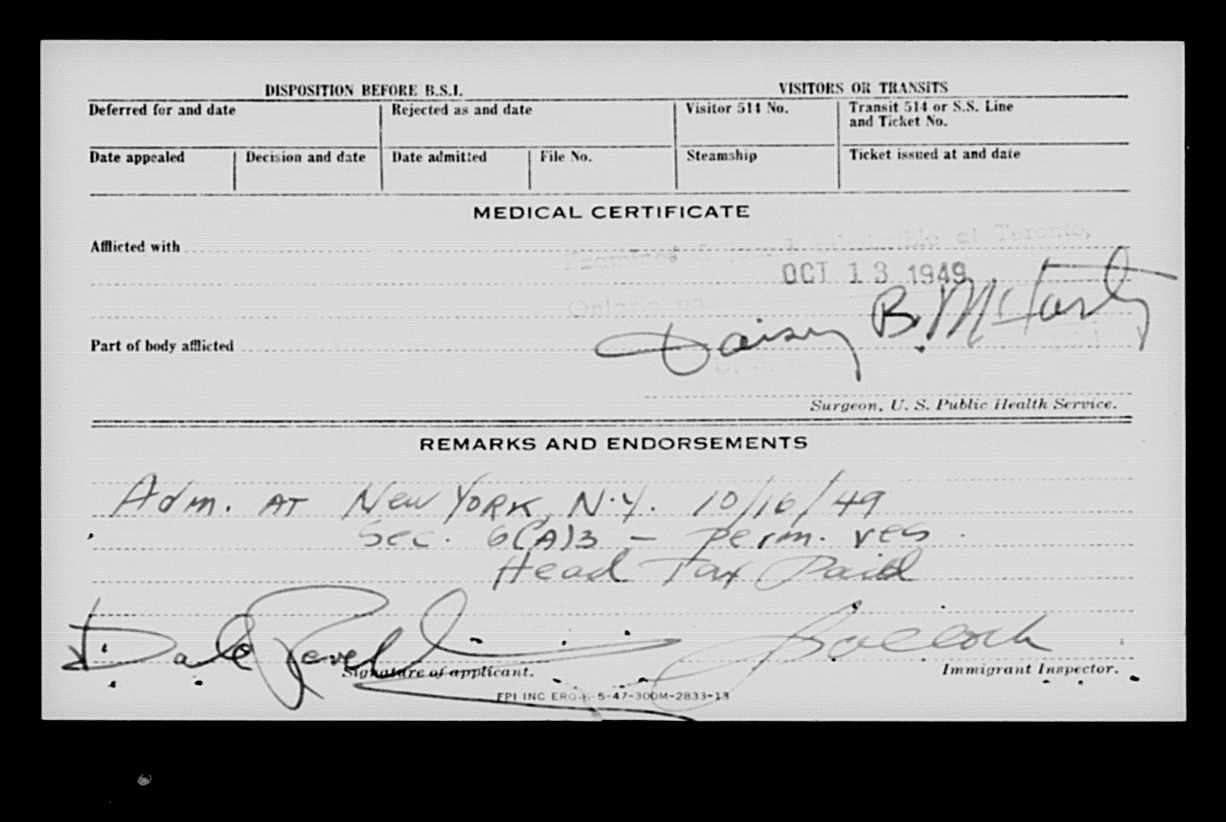 DISPOSITION BEFORE B.S.I. VISITORS OR TRANSITS
Deferred for and date Rejected as and date Visitor 514 No. Transit 514 or S.S. Line and Ticket No.
Date appealed Decision and date Date admitted File No. Steamship Ticket issued at and date
MEDICAL CERTIFICATE
Afflicted with
at Toronto,
OCT 13 1949
Ontario on
Daisy B. McCarty
Part of body afflicted
Surgeon, U. S. Public Health Service.
REMARKS AND ENDORSEMENTS
Adm. AT New YORK, N.Y. 10/16/49
Sec. 6(A)3 — perm. res.
Head Tax Paid
Dale
Signature of applicant. Immigrant Inspector.
FPI INC 5-47-300M-2833-13